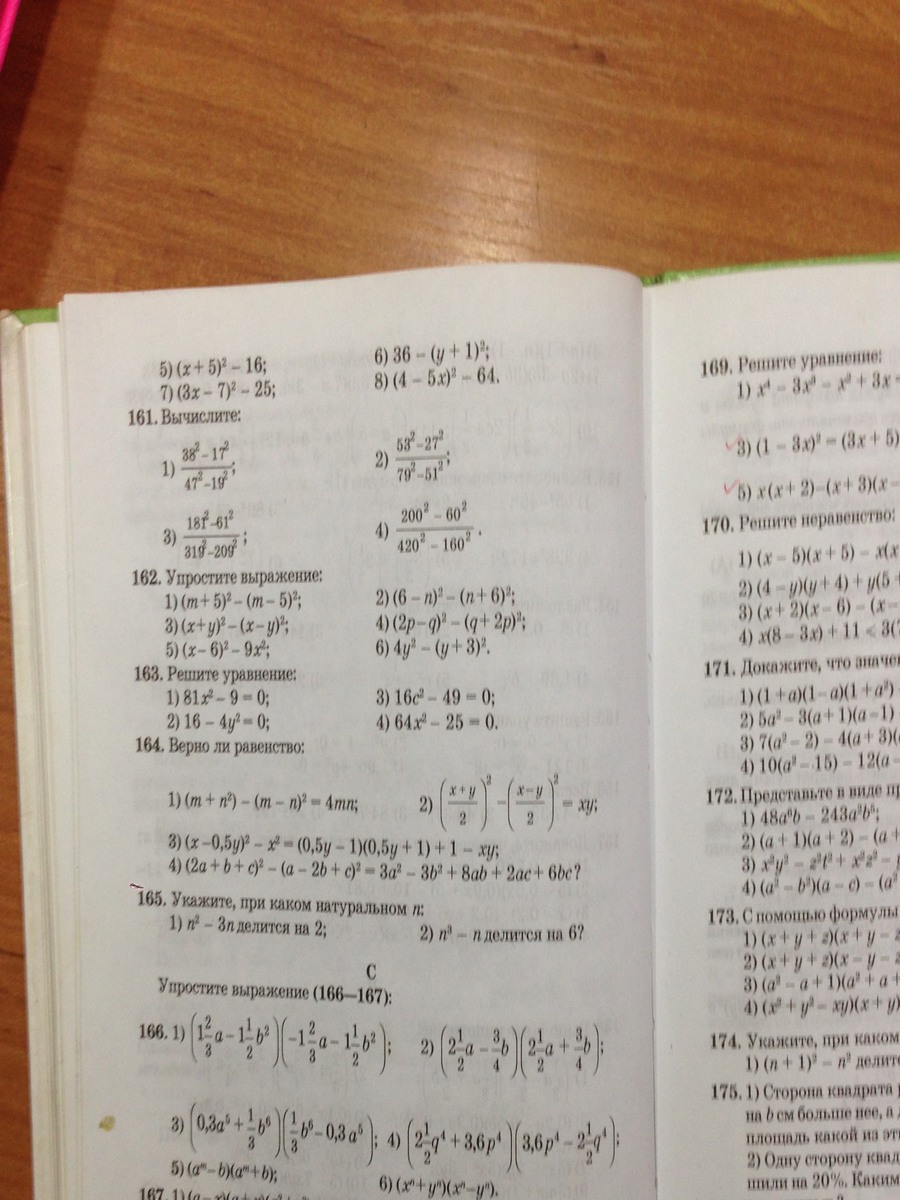 5) (x + 5)² – 16; 6) 36 – (y + 1)²;
7) (3x – 7)² – 25; 8) (4 – 5x)² – 64.
161. Вычислите:
1) (38² – 17²)/(47² – 19²); 2) (53² – 27²)/(79² – 51²);
3) (181² – 61²)/(319² – 209²); 4) (200² – 60²)/(420² – 160²).
162. Упростите выражение:
1) (m + 5)² – (m – 5)²; 2) (6 – n)² – (n + 6)²;
3) (x + y)² – (x – y)²; 4) (2p – q)² – (q + 2p)²;
5) (x – 6)² – 9x²; 6) 4y² – (y + 3)².
163. Решите уравнение:
1) 81x² – 9 = 0; 3) 16c² – 49 = 0;
2) 16 – 4y² = 0; 4) 64x² – 25 = 0.
164. Верно ли равенство:
1) (m + n²) – (m – n)² = 4mn; 2) ((x + y)/2)² – ((x – y)/2)² = xy;
3) (x – 0,5y)² – x² = (0,5y – 1)(0,5y + 1) + 1 – xy;
4) (2a + b + c)² – (a – 2b + c)² = 3a² – 3b² + 8ab + 2ac + 6bc?
165. Укажите, при каком натуральном n:
1) n² – 3n делится на 2; 2) n³ – n делится на 6?
С
Упростите выражение (166—167):
166. 1) (1 2/3 a – 1 1/2 b²)(–1 2/3 a – 1 1/2 b²); 2) (2 1/2 a – 3/4 b)(2 1/2 a + 3/4 b);
3) (0,3a⁵ + 1/3 b⁶)(1/3 b⁶ – 0,3a⁵); 4) (2 1/2 q⁴ + 3,6p⁴)(3,6p⁴ – 2 1/2 q⁴);
5) (aᵐ – b)(aᵐ + b); 6) (xⁿ + yⁿ)(xⁿ – yⁿ).
167. 1)
169. Решите уравнение:
1) x⁴ – 3x³ – x² + 3x
3) (1 – 3x)² = (3x + 5)
5) x(x + 2) – (x + 3)(x –
170. Решите неравенство:
1) (x – 5)(x + 5) – x(x
2) (4 – y)(y + 4) + y(5
3) (x + 2)(x – 6) – (x –
4) x(8 – 3x) + 11 < 3(
171. Докажите, что
1) (1 + a)(1 – a)(1 + a²)
2) 5a² – 3(a + 1)(a – 1)
3) 7(a² – 2) – 4(a + 3)(
4) 10(a² – 15) – 12(a
172. Представьте в виде
1) 48a⁶b – 243a²b⁵;
2) (a + 1)(a + 2) – (a +
3) x²y² – z²t² + x²z² –
4) (a² – b²)(a – c) – (a²
173. С помощью формулы
1) (x + y + z)(x + y –
2) (x + y + z)(x – y –
3) (a² – a + 1)(a² + a +
4) (x² + y² – xy)(x + y)
174. Укажите, при
1) (n + 1)² – n²
175. 1) Сторона квадрата
на b см больше нее, а
площадь какой из
2) Одну сторону
на 20%.